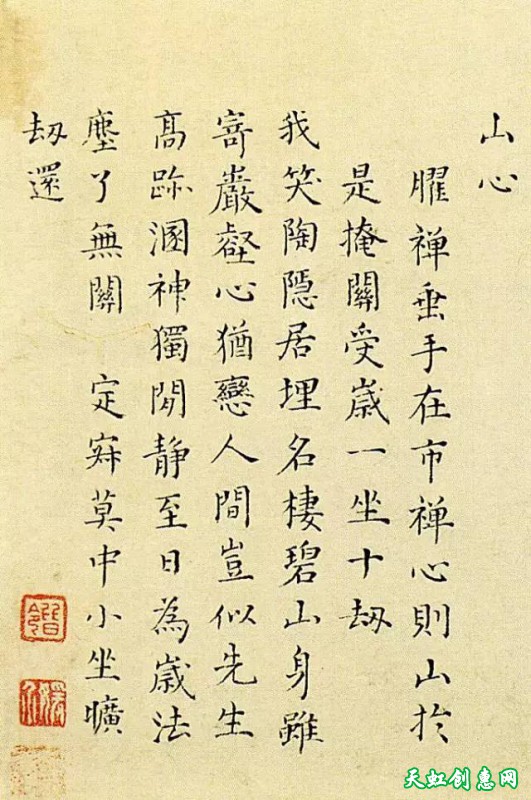 山心
臞禪垂手在市禪心則山扵
是掩關受嵗一坐十刼
我笑陶隱居埋名棲碧山身雖
寄巖壑心猶戀人間豈似先生
髙跡溷神獨閒静至日為嵗法
塵了無關 定寂莫中小坐曠
刼還
天虹创惠网